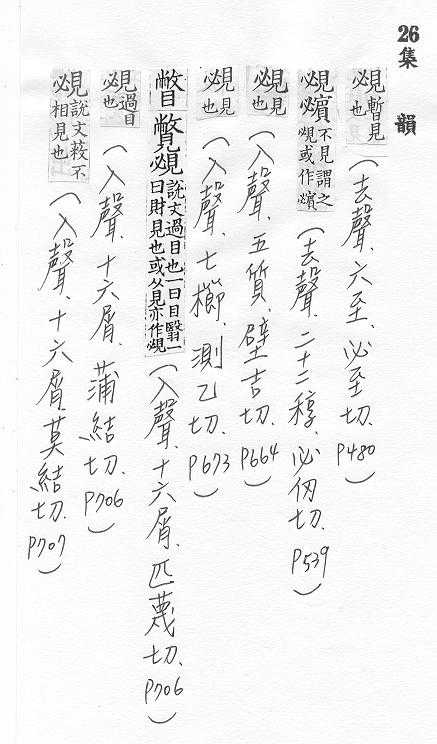 26集 韻
覕暫見也(去聲、六至、必至切、P480)
覕 不見謂之覕或作(去聲、二十二稕、必仞切、P539)
覕見也(入聲、五質、壁吉切、P664)
覕見也(入聲、七櫛、測乙切、P673)
瞥覕說文過目也一曰目翳一曰財見也或从見亦作覕(入聲、十六屑、匹蔑切、P706)
覕過目也(入聲、十六屑、蒲結切、P706)
覕說文蔽不相見也(入聲、十六屑、莫結切、P707)